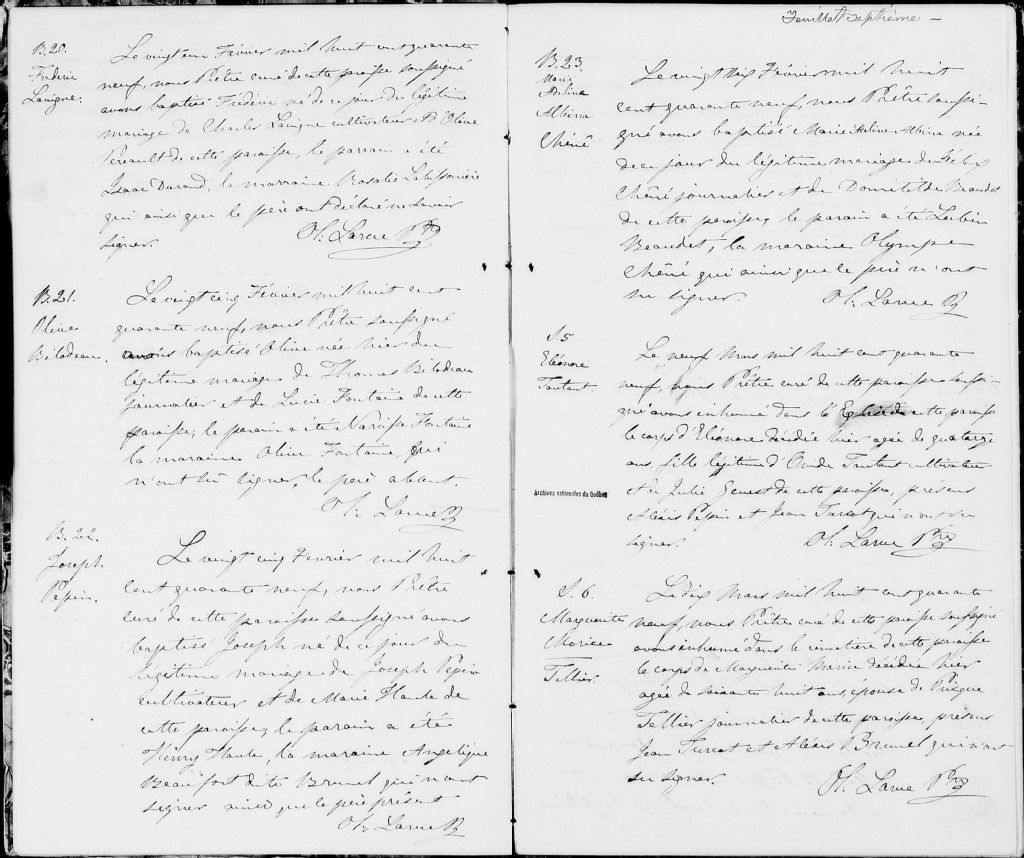 B.20.
Fréderic
Lavigne.
Le vingt un Février mil huit cent quarante
neuf, nous Prêtre curé de cette paroisse soussigné
avons baptisé Fréderic né de ce jour du légitime
mariage de Charles Lavigne cultivateur et d'Olive
Perault de cette paroisse, le parrain a été
Isaac Durand, la marraine Rosalie Labissonière
qui ainsi que le père ont déclaré ne savoir
signer.
Ol: Larue Ptr
B.21.
Olive
Bilodeau.
Le vingt cinq Février mil huit cent
quarante neuf, nous Prêtre soussigné
avons baptisé Olive née hier du
légitime mariage de Thomas Bilodeau
journalier et de Lucie Fontaine de cette
paroisse, le parain a été Naraisse Fontaine
la maraine Olive Fontaine, qui
n'ont sû signer, le père absent.
Ol: Larue
B.22.
Joseph
Pepin.
Le vingt cinq Fevrier mil huit
cent quarante neuf, nous Prêtre
curé de cette paroisse soussigné avons
baptisé Joseph né de ce jour du
légitime mariage de Joseph Pepin
cultivateur et de Marie Haule de
cette paroisse, le parain a été
Henry Haule, la maraine Angelique
Beaufort dite Brunel qui n'ont
signer ainsi que le père présent
Ol: Larue
Feuillet septième —
B.23.
Marie
Adelina
Albina
Chêné
Le vingt six Février mil huit
cent quarante neuf, nous Prêtre soussi-
gné avons baptisé Marie Adeline Albina née
de ce jour du légitime mariage de Félix
Chêné journalier et de Domitilde Beaudet
de cette paroisse, le parain a été Lubin
Beaudet, la maraine Olympe
Chêné qui ainsi que le père n'ont
su signer.
Ol: Larue
S.5
Eléonore
Toutant.
Le neuf Mars mil huit cent quarante
neuf, nous Prêtre curé de cette paroisse soussi-
gné avons inhumé dans l'Eglise de cette paroisse
le corps d'Eléonore décédée hier agée de quatorze
ans, fille légitime d'Ovide Toutant cultivateur
et de Julie Genest de cette paroisse, présens
Aléxis Pepin et Jean Turcot qui n'ont su
signer.
Ol: Larue Ptr
Archives nationales du Québec
S. 6.
Marguerite
Morice
Tellier.
Le dix Mars mil huit cent quarante
neuf, nous Prêtre curé de cette paroisse soussigné
avons inhumé dans le cimetière de cette paroisse
le corps de Marguerite Morice décédée hier
agée de soixante huit ans, épouse de Prisque
Tellier journalier de cette paroisse, présens
Jean Turcot et Aléxis Brunel qui n'ont
su signer.
Ol: Larue Ptr